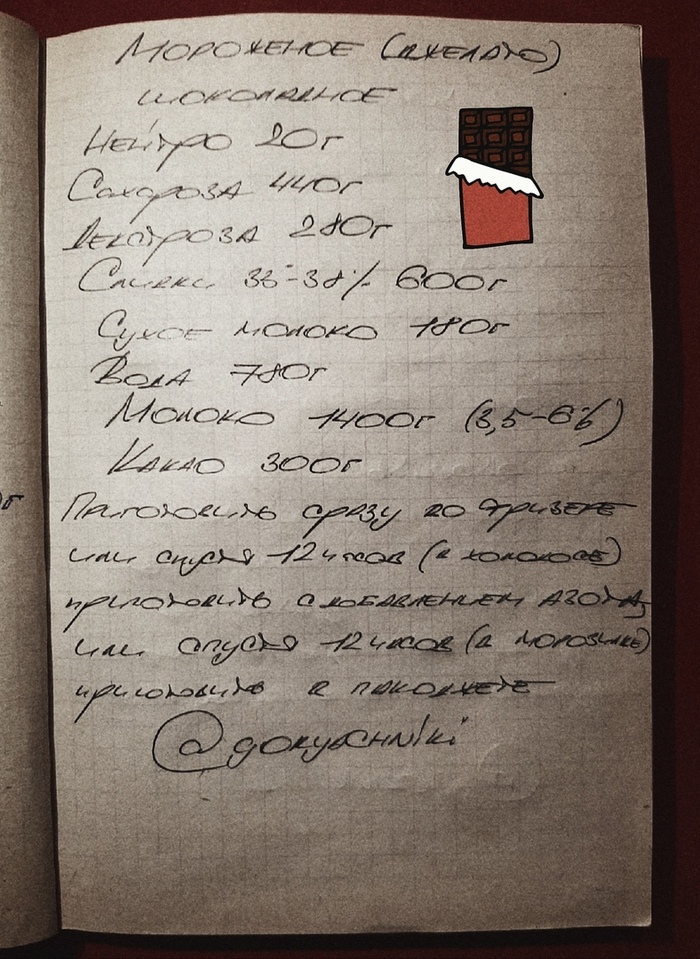 Мороженое (джелато)
шоколадное
Нейтро 20г
Сахароза 440г
Декстроза 280г
Сливки 33-38% 600г
Сухое молоко 180г
Вода 780г
Молоко 1400г (3,5-6%)
Какао 300г
Приготовить сразу во фризере
или спустя 12 часов (в холодосе)
приготовить с добавлением азота,
или спустя 12 часов (в морозилке)
приготовить в пакоджете
@goryachniki